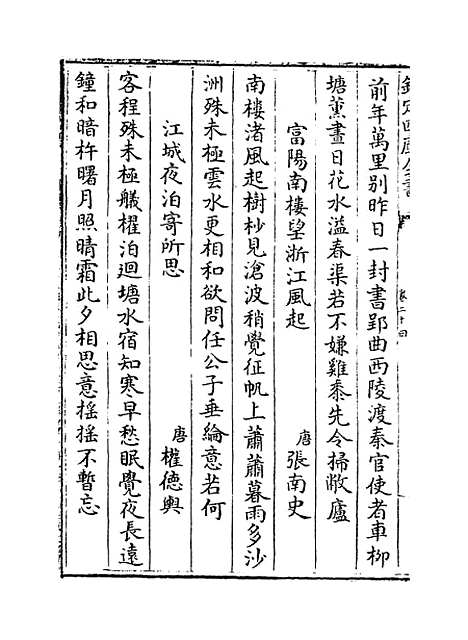 欽定四庫全書
卷二十四
前年萬里别昨日一封書郢曲西陵渡秦官使者車柳
塘薫晝日花水溢春渠若不嫌雞黍先令掃敝廬
富陽南樓望浙江風起
唐 張南史
南樓渚風起樹杪見滄波稍覺征帆上蕭蕭暮雨多沙
洲殊未極雲水更相和欲問任公子垂綸意若何
江城夜泊寄所思
唐 權德輿
客程殊未極艤櫂泊迴塘水宿知寒早愁眠覺夜長遠
鐘和暗杵曙月照晴霜此夕相思意摇摇不暫忘